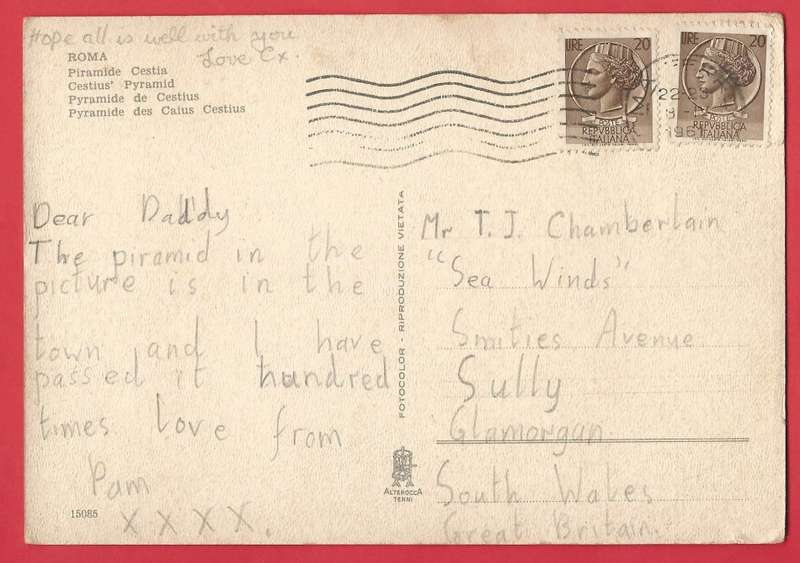 Hope all is well with you
Love Ex.
ROMA
Piramide Cestia
Cestius' Pyramid
Pyramide de Cestius
Pyramide des Caius Cestius
LIRE 20
POSTE
REPVBBLICA
ITALIANA
LIRE 20
POSTE
REPVBBLICA
ITALIANA
22
196
Dear Daddy
The piramid in the
picture is in the
town and I have
passed it hundred
times love from
Pam
X X X X.
15085
FOTOCOLOR - RIPRODUZIONE VIETATA
ALTEROCCA
TERNI
Mr T. J. Chamberlain
"Sea Winds"
Smities Avenue
Sully
Glamorgan
South Wales
Great Britain.